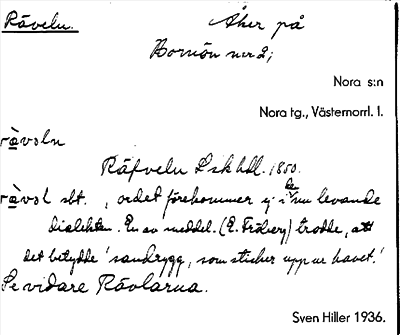 Råveln.
Åker på
Bornön nr 2;
Nora s:n
Nora tg., Västernorrl. l.
råvəln
Råfveln L skhdl. 1850.
råvəl sbt. , ordet förekommer ej i den nu levande
dialekten. En av meddel. (E. Fröberg) trodde, att
det betydde 'sandrygg, som sticker upp ur havet.'
Se vidare Råvlarna.
Sven Hiller 1936.